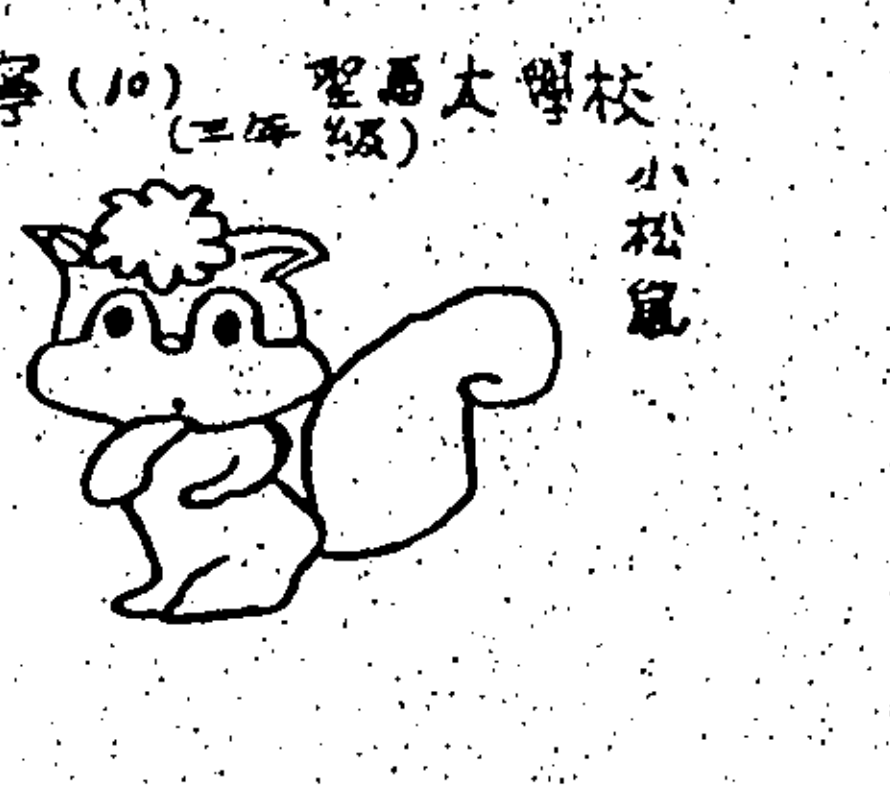 (10) 聖馬太學校
(三年級)
小松鼠